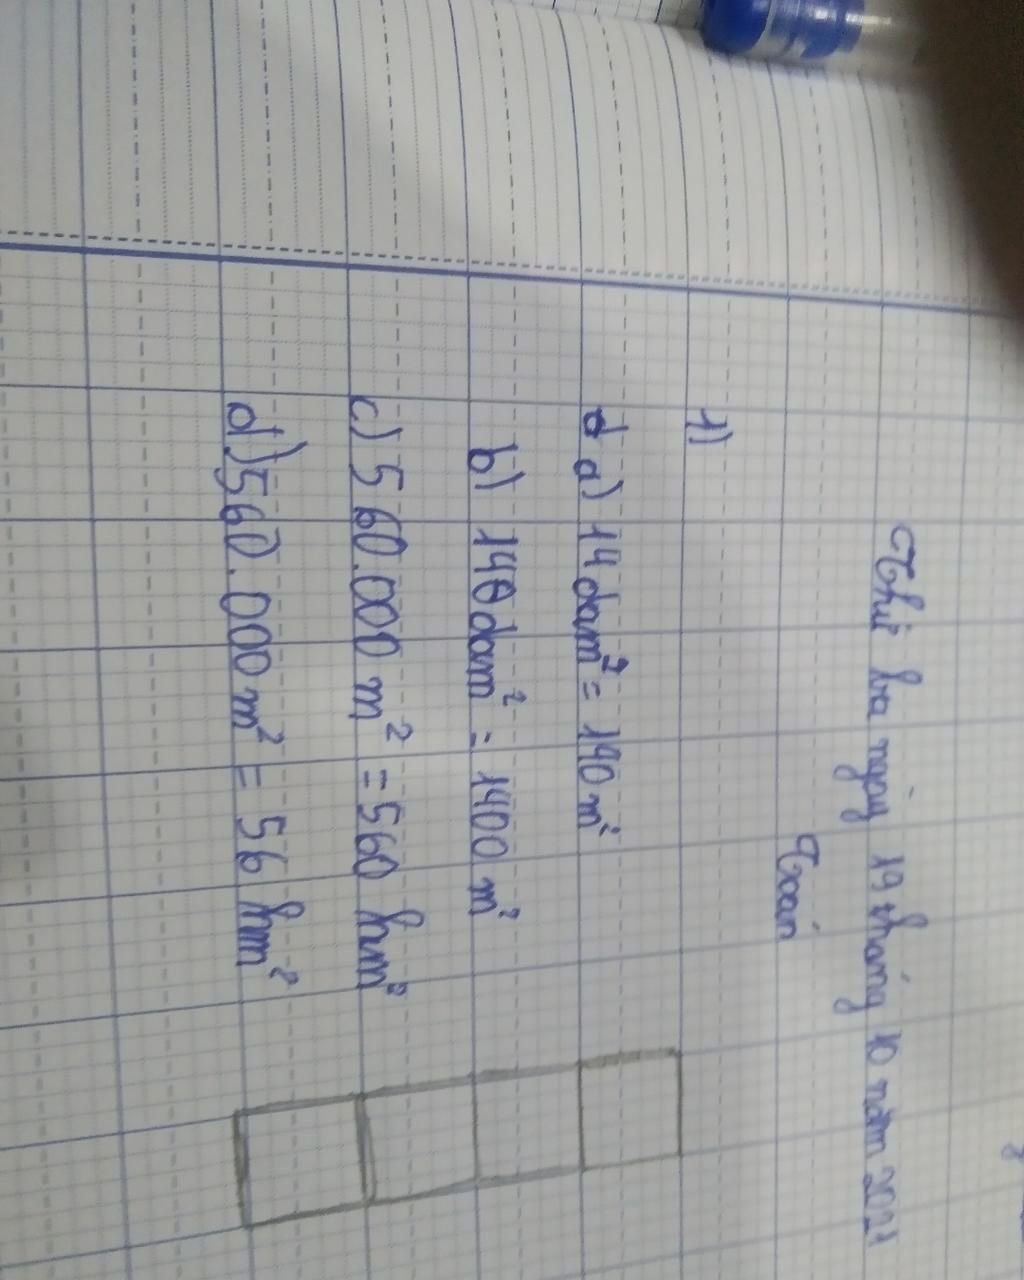 Thứ ba ngày 19 tháng 10 năm 2021
Toán
1)
a) 14 dam² = 140 m²
b) 140 dam² = 1400 m²
c) 560.000 m² = 560 hm²
d) 560.000 m² = 56 hm²